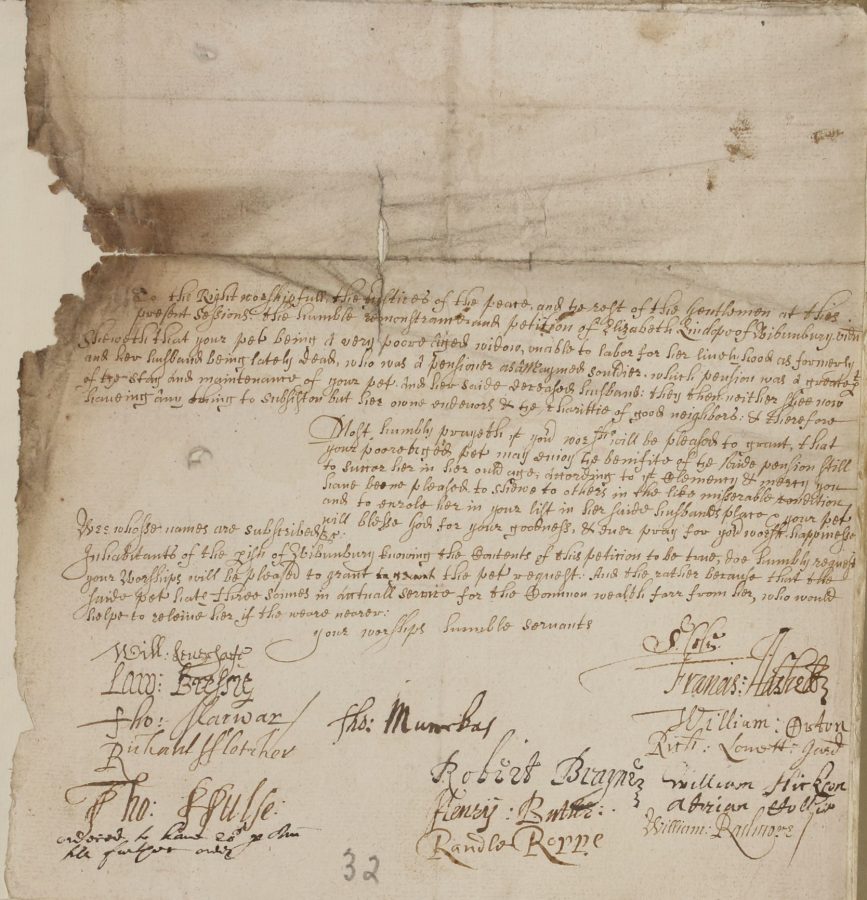 To the Right worshipfull, the Justices of the peace, and the rest of the Gentlemen at this
present Sessions the humble remonstrance and petition of Elizabeth of Wibunbury, widd
Sheweth that your pet being a very poore Aged widow, unable to labor for her livelyhood as formerly
and her husband being lately dead, who was a pensioner as a Maymed souldier, which pension was a greate pt
of the stay and maintenance of your pet. and her saide deceased husband: they then neither now
haveing any thing to subsist on but her owne endevors & the charittie of good neighbors: & therefore
Most humbly prayeth yt your worspps will be pleased to grant, that
your poore pet may enjoy the benifite of the saide pension still
to succor her in her ould age, according to yt Clemency & mercy you
have beene pleased to shewe to others in the like miserable condition
and to enrole her in your list in her saide husbands place & your pet
will blesse God for your goodness, & ever pray for yor worspps happinesse
Wee whosse names are subscribed &c
Inhabitants of the pish of Wibunbury knowing the Contents of this petition to be true, doe humbly request
your Worships will be pleased to grant the pet request: And the rather because that the
saide pet hath three sonnes in actuall service for the Common wealth farr from her, who would
helpe to releive her if the weare nearer:
your worships humble servants
Will:
Law: Bressie
Francis:
Tho:
Tho:
William: Orton
Richard Fletcher
Rich: Lovett: gard
Robert
William Hickson
Tho: Hulse:
Henry:
Adrian
Randle Roppe
William: Radmore
ordered to have 20s p Ann
till further order
32